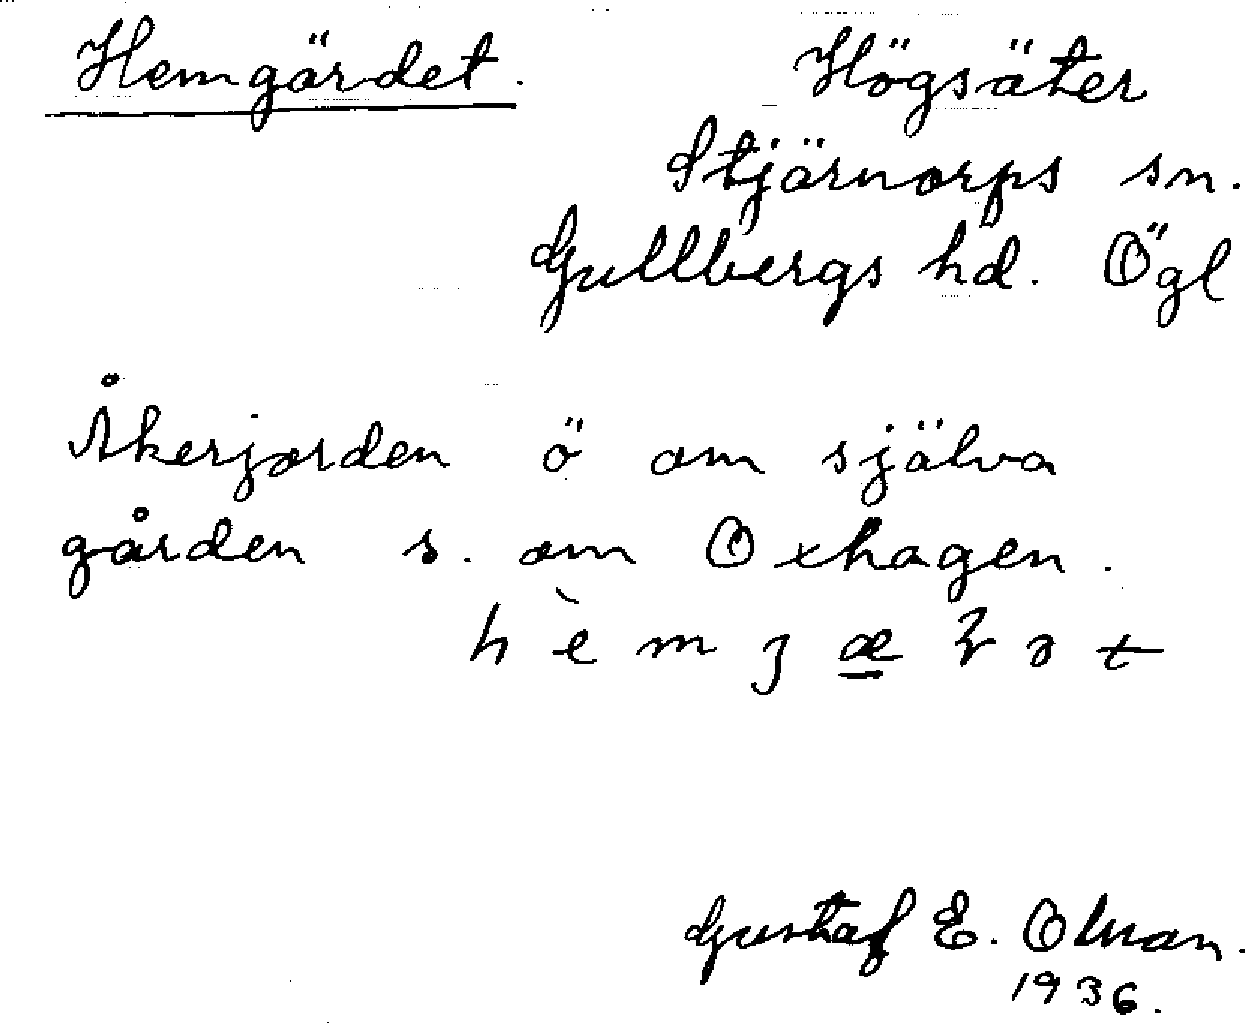 Hemgärdet. Högsäter
Stjärnorps sn.
Gullbergs hd. Ögl
Åkerjorden ö om själva
gården s. om Oxhagen.
h è m
Gustaf E.
1936.